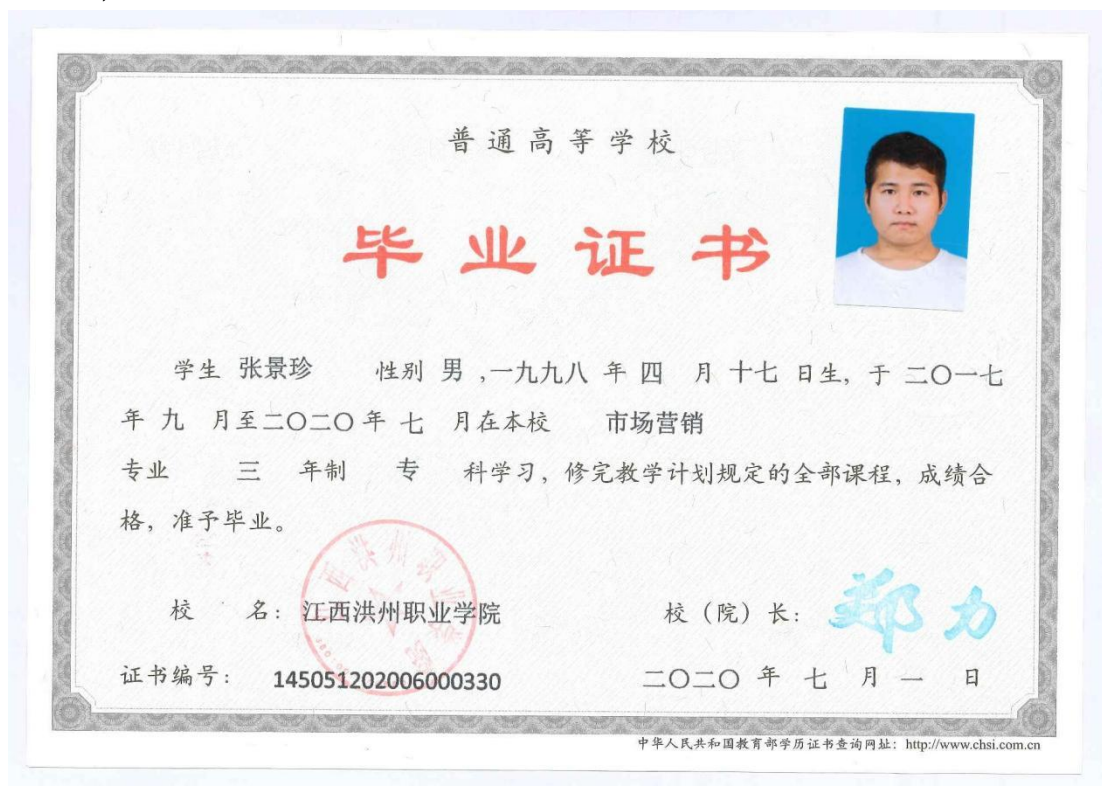 普通高等学校
毕业证书
学生 张景珍 性别 男 ,一九九八 年 四 月 十七 日生, 于 二〇一七
年 九 月至二〇二〇年 七 月在本校 市场营销
专业 三 年制 专 科学习, 修完教学计划规定的全部课程, 成绩合
格, 准予毕业。
江西洪州职业学院
校 名: 江西洪州职业学院 校(院)长: 郑力
证书编号: 145051202006000330 二〇二〇 年 七 月 一 日
中华人民共和国教育部学历证书查询网址: http://www.chsi.com.cn